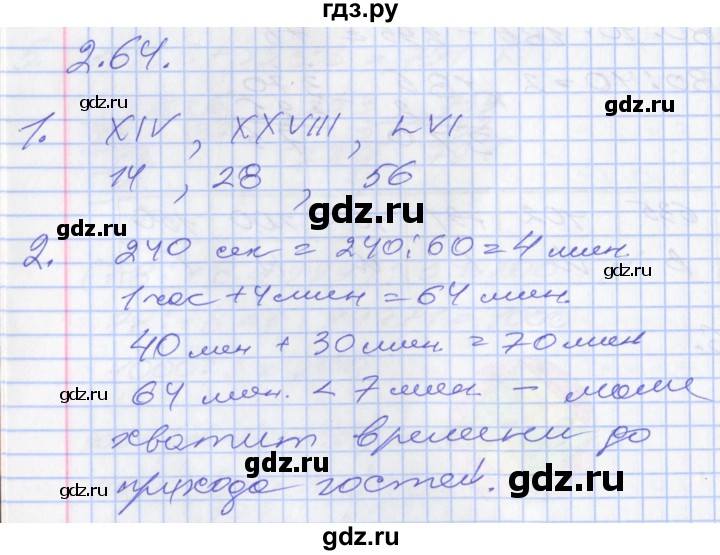 гдз.ру
2.64.
1. XIV, XXVIII, LVI
14, 28, 56
2. 240 сек = 240:60=4 мин.
1 час + 4 мин = 64 мин.
40 мин + 30 мин = 70 мин
64 мин. < 7 мин – маме
хватит времени до
прихода гостей.
gdz.ru
gdz.ru
gdz.ru
gdz.ru
gdz.ru
gdz.ru
gdz.ru
gdz.ru
gdz.ru
gdz.ru
gdz.ru